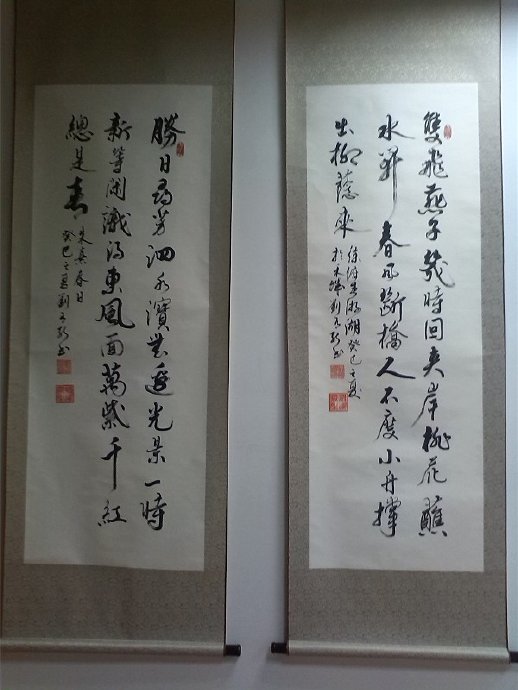 雙飛燕子幾時回夾岸桃花蘸
水開春雨斷橋人不度小舟撐
出柳蔭來
徐俯春游湖癸巳之夏
於劉書
勝日尋芳泗水濱無邊光景一時
新等閒識得東風面萬紫千紅
總是春
朱熹春日
癸巳之夏劉書